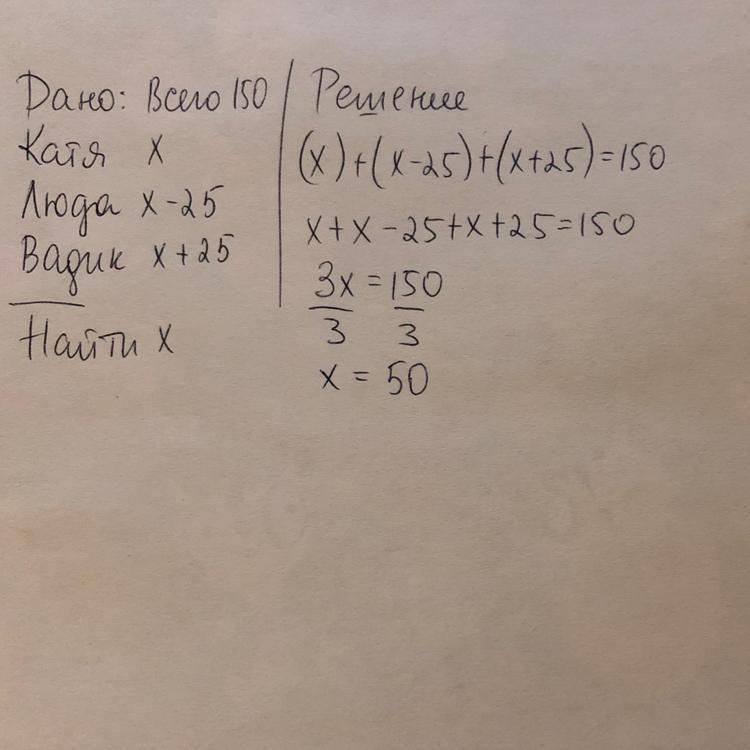 Дано: Всего 150
Катя х
Люда х-25
Вадик х+25
Найти х
Решение
(х)+(х-25)+(х+25)=150
х+х-25+х+25=150
3х = 150
3 3
х = 50